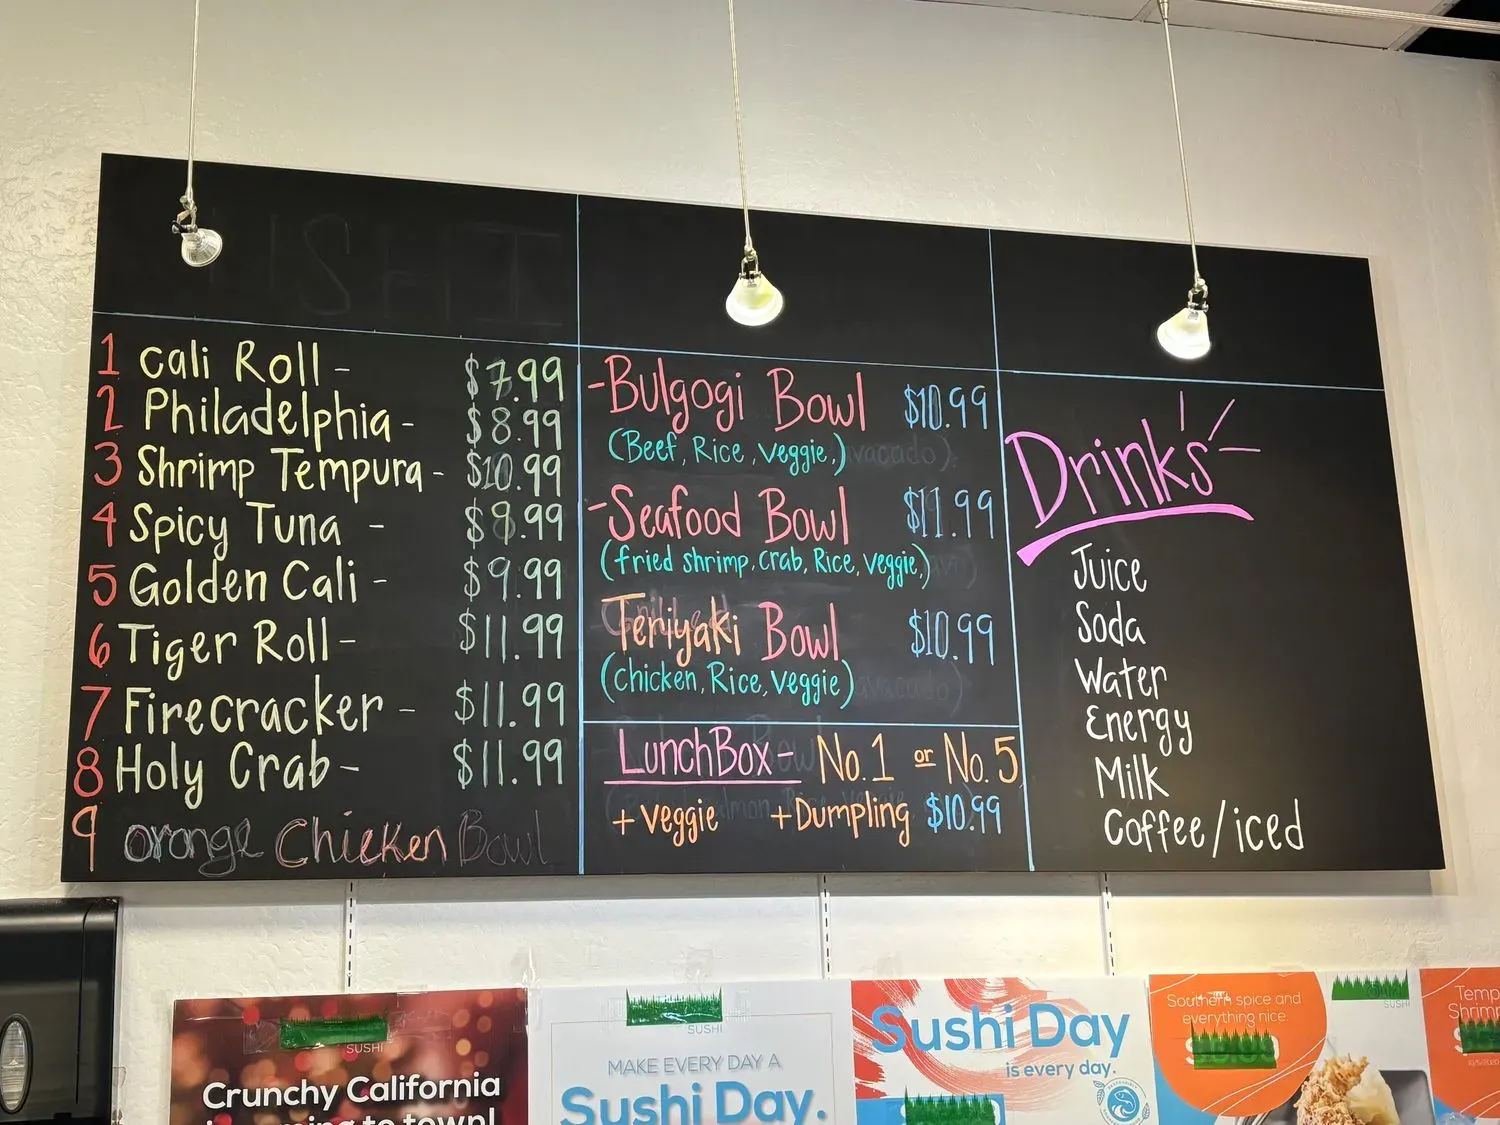 1 Cali Roll - $7.99
2 Philadelphia - $8.99
3 Shrimp Tempura - $10.99
4 Spicy Tuna - $9.99
5 Golden Cali - $9.99
6 Tiger Roll - $11.99
7 Firecracker - $11.99
8 Holy Crab - $11.99
9 orange Chicken Bowl
-Bulgogi Bowl $10.99
(Beef, Rice, veggie,)
-Seafood Bowl $11.99
(fried shrimp, crab, Rice, veggie,)
Teriyaki Bowl $10.99
(chicken, Rice, veggie)
LunchBox- No.1 or No.5
+ veggie + Dumpling $10.99
Drinks
Juice
Soda
Water
Energy
Milk
Coffee/iced
SUSHI
Crunchy California
SUSHI
MAKE EVERY DAY A
Sushi Day.
Sushi Day
is every day.
Southern spice and
everything nice.
SUSHI